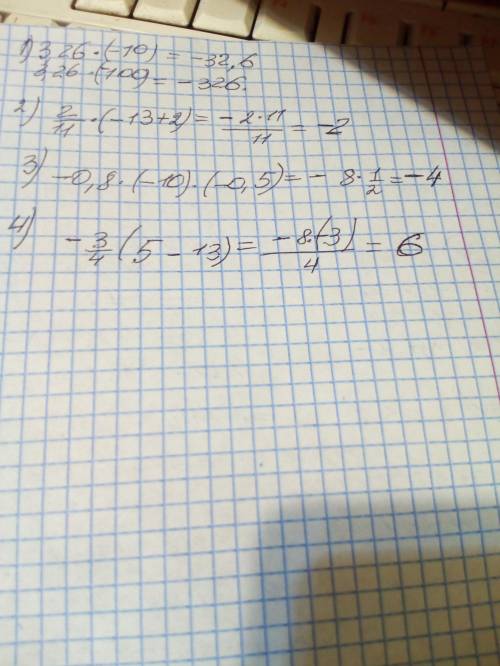 1) 3,26·(-10) = -32,6
3,26·(-100) = -326.
2) 2/11·(-13+2) = -2·11/11 = -2
3) -0,8·(-10)·(-0,5) = - 8·1/2 = -4
4) -3/4(5-13) = -8·(-3)/4 = 6